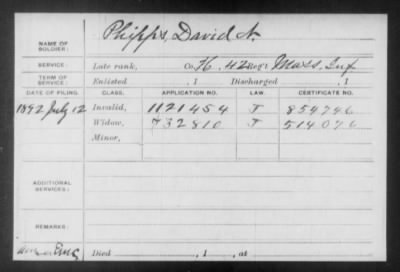 NAME OF SOLDIER: Phipps, David N.
SERVICE: Late rank, Co. H, 42 Reg't Mass. Inf
TERM OF SERVICE: Enlisted , 1 Discharged , 1
DATE OF FILING. CLASS. APPLICATION NO. LAW. CERTIFICATE NO.
1892 July 12 Invalid, 1121454 J 854746
Widow, 732810 J 514076
Minor,
ADDITIONAL SERVICES:
REMARKS:
Died , 1 , at